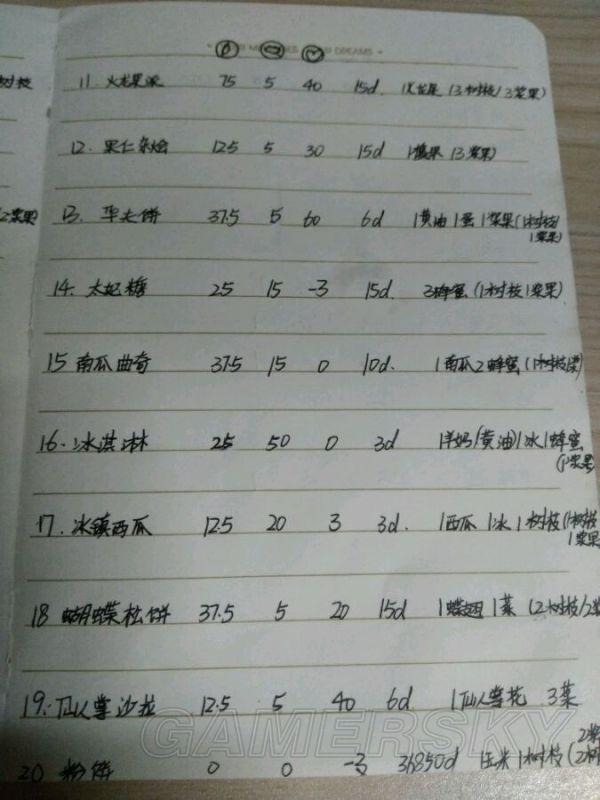 DREAMS
树枝
11. 火龙果派 75 5 40 15d 1火龙果 (3树枝/3浆果)
12. 果仁杂烩 12.5 5 30 15d 1 果 (3浆果)
2浆果)
13. 华夫饼 37.5 5 60 6d 1黄油 1蛋 1浆果 (1树枝/
1浆果)
14. 太妃糖 25 15 -3 15d. 3蜂蜜 (1树枝 1浆果)
15 南瓜曲奇 37.5 15 0 10d. 1南瓜 2蜂蜜 (1树枝
16. 冰淇淋 25 50 0 3d 1羊奶(黄油) 1冰 1蜂蜜
(1浆果)
17. 冰镇西瓜 12.5 20 3 3d. 1西瓜 1冰 1树枝 (1树枝
1浆果
18 蝴蝶松饼 37.5 5 20 15d 1蝶翅 1菜 (2树枝/2
19. 仙人掌沙拉 12.5 5 40 6d 1仙人掌花 3菜
20 粉饼 0 0 -3 36850d 玉米 1树枝 (
GAMERSKY